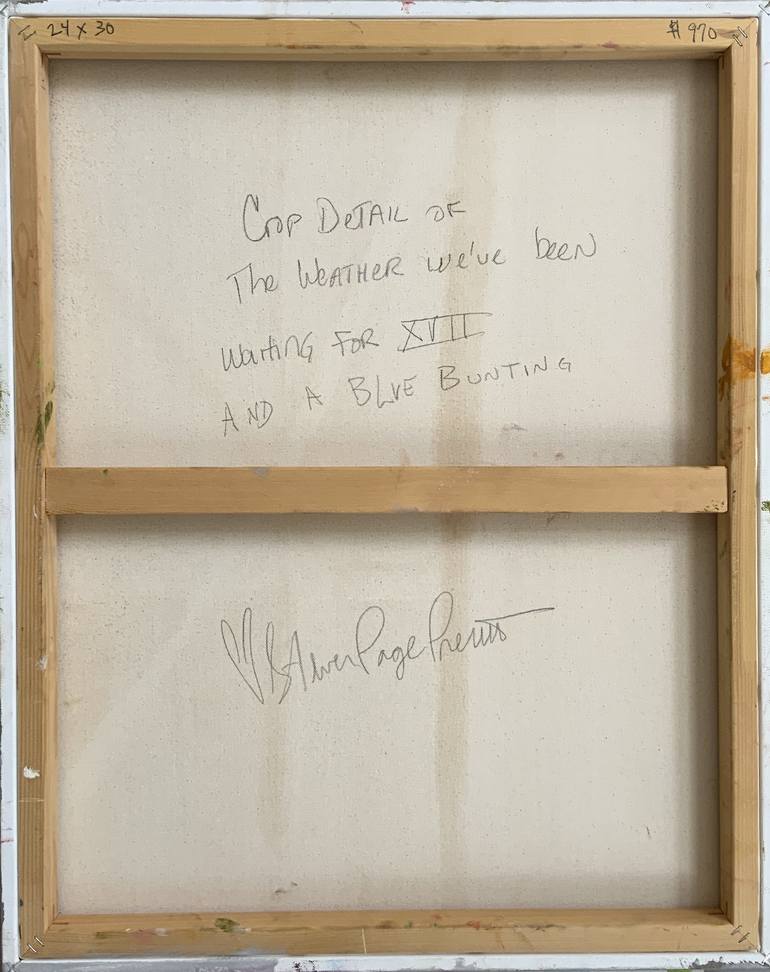 24 x 30
# 970
Crop Detail of
The Weather we've been
Waiting for XVII
And a Blue Bunting
Page